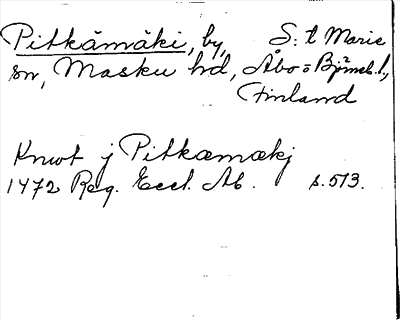 Pitkämäki, by, S:t Marie
sn, Masku hd, Åbo o Björneb. l.,
Finland
Knwt j Pitkæmækj
1472 Reg. Eccl. Ab. s. 513.